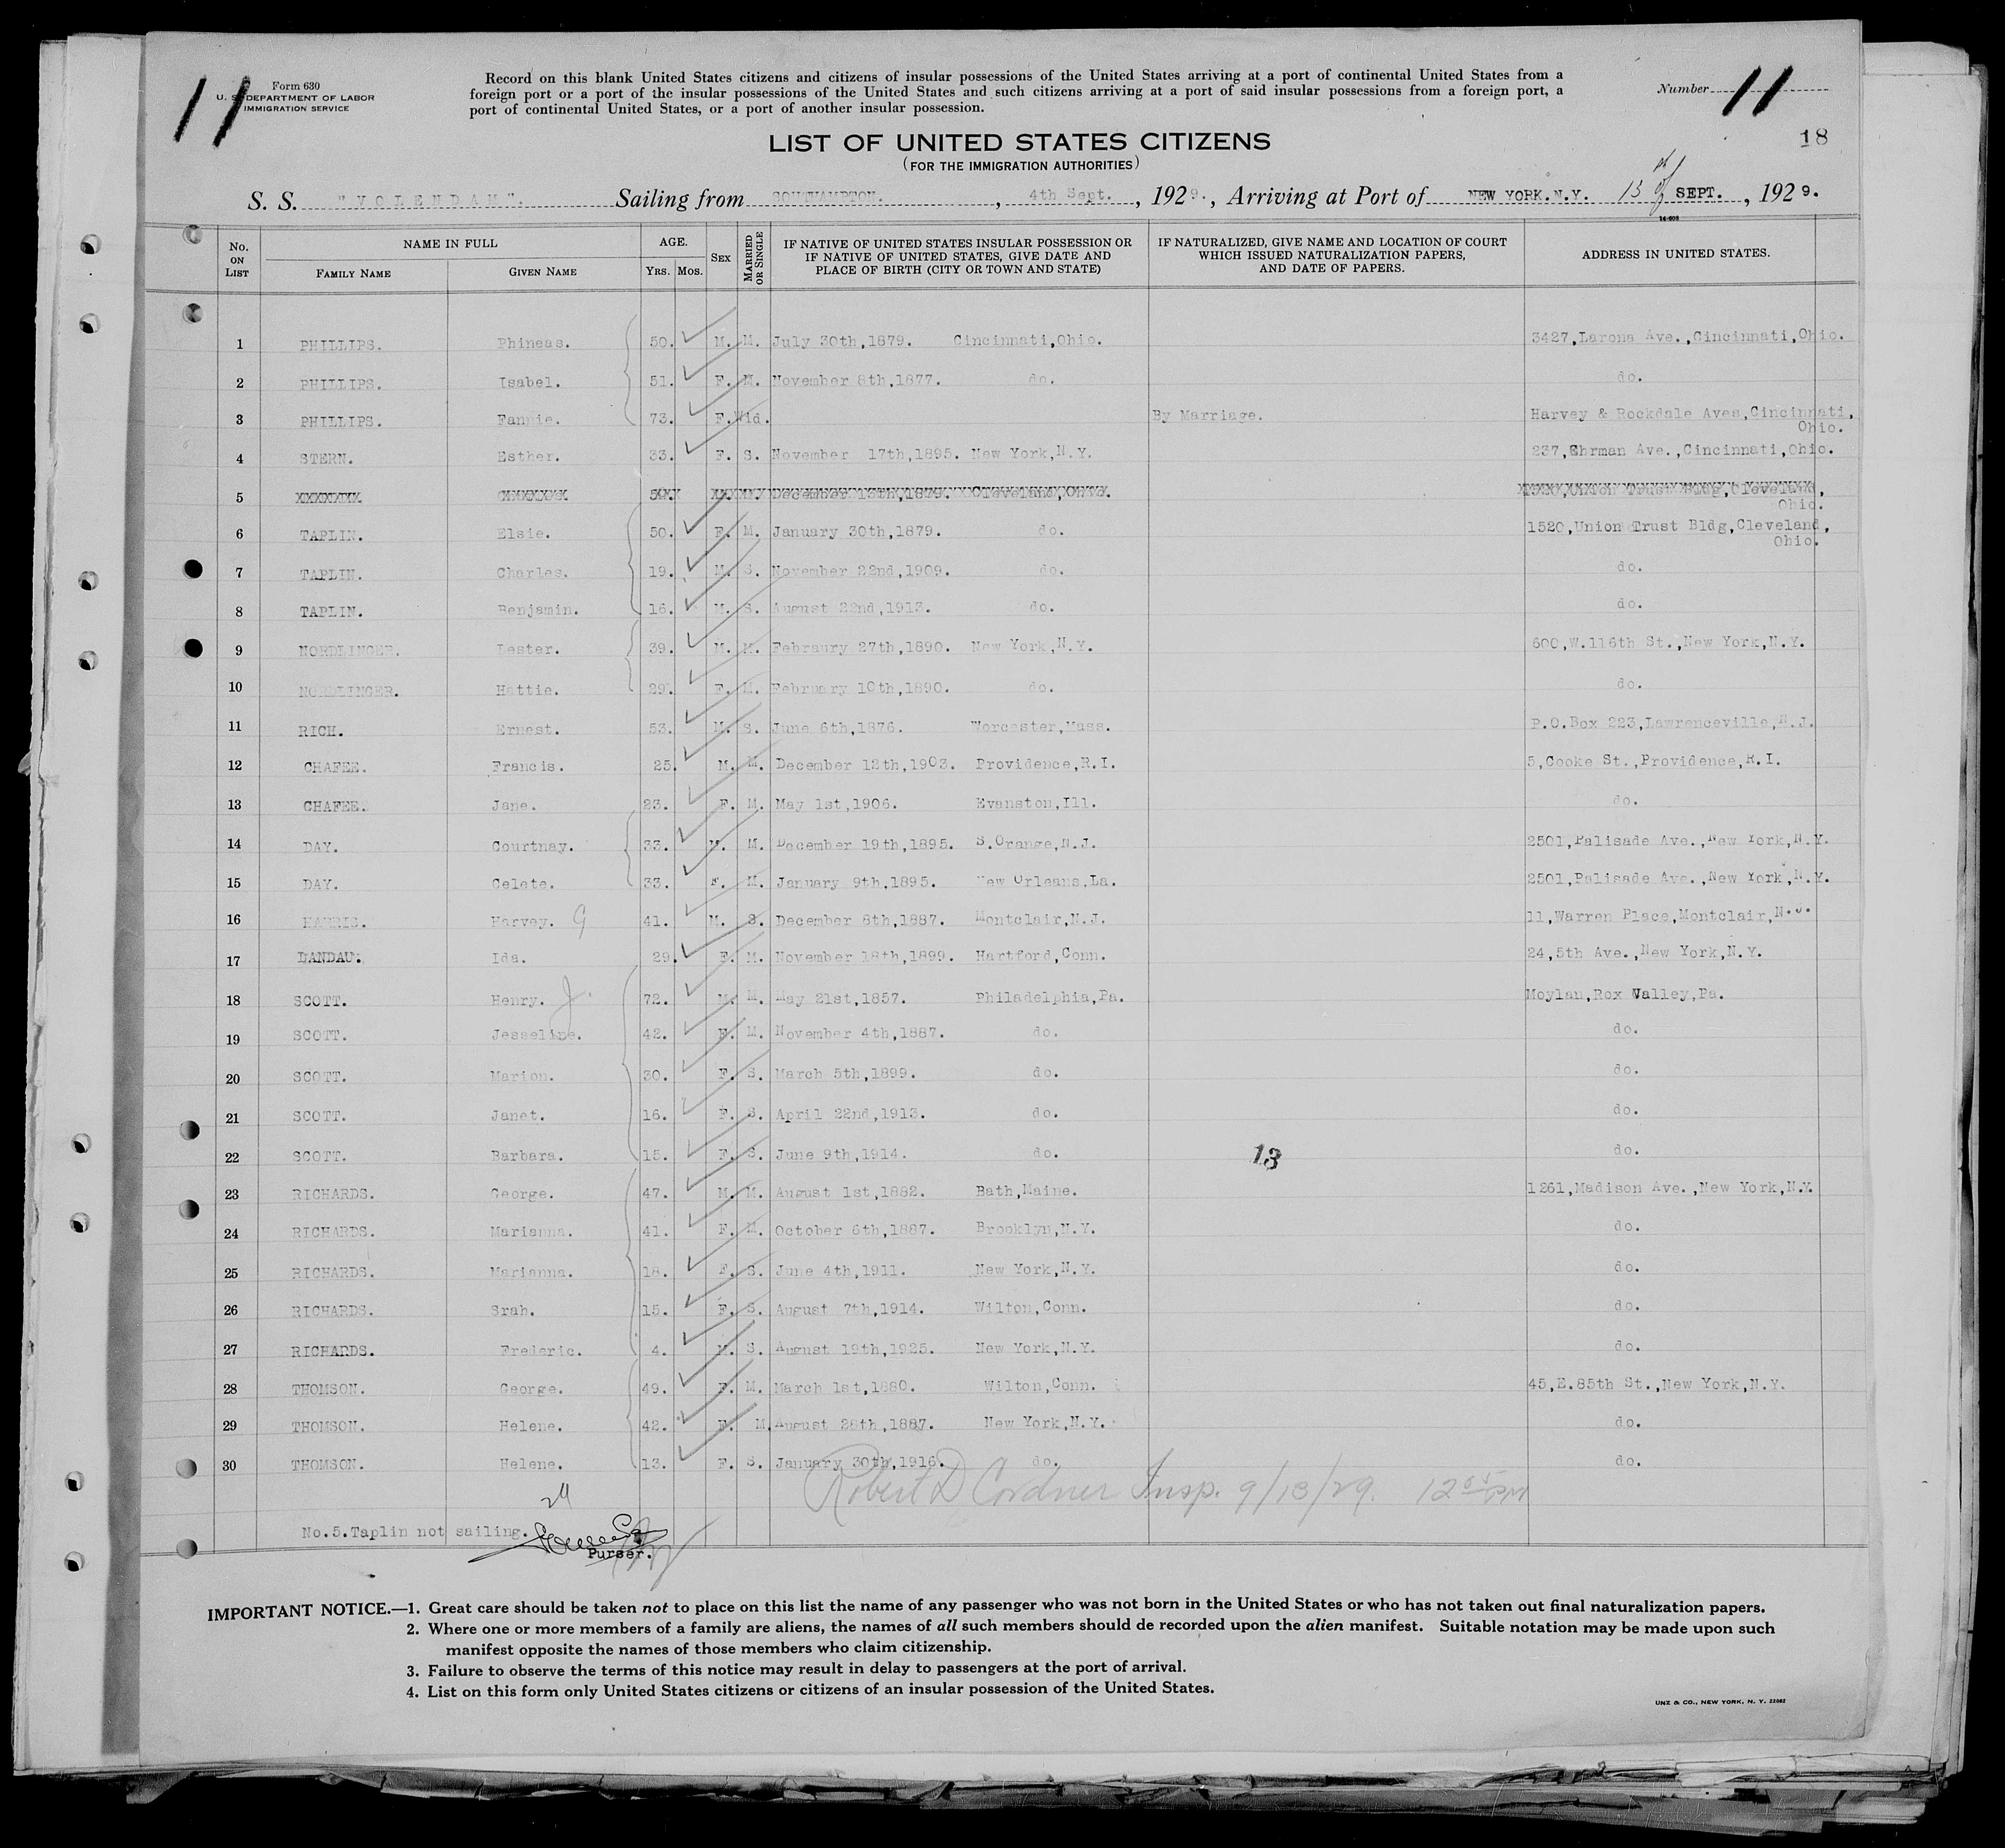 11
Form 630
U. S. DEPARTMENT OF LABOR
IMMIGRATION SERVICE
Record on this blank United States citizens and citizens of insular possessions of the United States arriving at a port of continental United States from a
foreign port or a port of the insular possessions of the United States and such citizens arriving at a port of said insular possessions from a foreign port, a
port of continental United States, or a port of another insular possession.
Number 11
18
LIST OF UNITED STATES CITIZENS
(FOR THE IMMIGRATION AUTHORITIES)
S. S. "VOLENDAM". Sailing from SOUTHAMPTON. , 4th Sept. , 1929. , Arriving at Port of NEW YORK.N.Y. 13 SEPT. , 1929.
16-608
No. ON LIST NAME IN FULL FAMILY NAME GIVEN NAME AGE. YRS. MOS. SEX MARRIED OR SINGLE IF NATIVE OF UNITED STATES INSULAR POSSESSION OR IF NATIVE OF UNITED STATES, GIVE DATE AND PLACE OF BIRTH (CITY OR TOWN AND STATE) IF NATURALIZED, GIVE NAME AND LOCATION OF COURT WHICH ISSUED NATURALIZATION PAPERS, AND DATE OF PAPERS. ADDRESS IN UNITED STATES.
1 PHILLIPS. Phineas. 50. M. M. July 30th,1879. Cincinnati,Ohio. 3427,Larona Ave.,Cincinnati,Ohio.
2 PHILLIPS. Isabel. 51. F. M. November 8th,1877. do. do.
3 PHILLIPS. Fannie. 73. F. Wid. By Marriage. Harvey & Rockdale Aves,Cincinnati,
Ohio.
4 STERN. Esther. 33. F. S. November 17th,1895. New York,N.Y. 237,Ehrman Ave.,Cincinnati,Ohio.
5 XXXXXXX XXXXXXX December 13th,1879. Cleveland,Ohio. 1520,Union Trust Bldg,Cleveland,
Ohio.
6 TAPLIN. Elsie. 50. F. M. January 30th,1879. do. 1520,Union Trust Bldg,Cleveland,
Ohio.
7 TAPLIN. Charles. 19. M. S. November 22nd,1909. do. do.
8 TAPLIN. Benjamin. 16. M. S. August 22nd,1913. do. do.
9 NORDLINGER. Lester. 39. M. M. Febraury 27th,1890. New York,N.Y. 600,W.116th St.,New York,N.Y.
10 NORDLINGER. Hattie. 29. F. M. February 10th,1890. do. do.
11 RICH. Ernest. 53. M. S. June 6th,1876. Worcester,Mass. P.O.Box 223,Lawrenceville,N.J.
12 CHAFEE. Francis. 25. M. M. December 12th,1903. Providence,R.I. 5,Cooke St.,Providence,R.I.
13 CHAFEE. Jane. 23. F. M. May 1st,1906. Evanston,Ill. do.
14 DAY. Courtnay. 33. M. M. December 19th,1895. S.Orange,N.J. 2501,Palisade Ave.,New York,N.Y.
15 DAY. Celete. 33. F. M. January 9th,1895. New Orleans,La. 2501,Palisade Ave.,New York,N.Y.
16 HARRIS. Harvey. G 41. M. S. December 8th,1887. Montclair,N.J. 11,Warren Place,Montclair,N.J.
17 LANDAU. Ida. 29. F. M. November 18th,1899. Hartford,Conn. 24,5th Ave.,New York,N.Y.
18 SCOTT. Henry. J. 72. M. M. May 21st,1857. Philadelphia,Pa. Moylan,Rox Valley,Pa.
19 SCOTT. Jesseline. 42. F. M. November 4th,1887. do. do.
20 SCOTT. Marion. 30. F. S. March 5th,1899. do. do.
21 SCOTT. Janet. 16. F. S. April 22nd,1913. do. do.
22 SCOTT. Barbara. 15. F. S. June 9th,1914. do. 13 do.
23 RICHARDS. George. 47. M. M. August 1st,1882. Bath,Maine. 1261,Madison Ave.,New York,N.Y.
24 RICHARDS. Marianna. 41. F. M. October 6th,1887. Brooklyn,N.Y. do.
25 RICHARDS. Marianna. 18. F. S. June 4th,1911. New York,N.Y. do.
26 RICHARDS. Srah. 15. F. S. August 7th,1914. Wilton,Conn. do.
27 RICHARDS. Frederic. 4. M. S. August 19th,1925. New York,N.Y. do.
28 THOMSON. George. 49. F. M. March 1st,1880. Wilton,Conn. 45,E.85th St.,New York,N.Y.
29 THOMSON. Helene. 42. F. M. August 28th,1887. New York,N.Y. do.
30 THOMSON. Helene. 13. F. S. January 30th,1916. do. do.
Robert D Cordner Insp. 9/13/29. 12 05 PM
29
No.5.Taplin not sailing.
Purser.
IMPORTANT NOTICE.—1. Great care should be taken not to place on this list the name of any passenger who was not born in the United States or who has not taken out final naturalization papers.
2. Where one or more members of a family are aliens, the names of all such members should de recorded upon the alien manifest. Suitable notation may be made upon such
manifest opposite the names of those members who claim citizenship.
3. Failure to observe the terms of this notice may result in delay to passengers at the port of arrival.
4. List on this form only United States citizens or citizens of an insular possession of the United States.
UNZ & CO., NEW YORK, N. Y. 22082